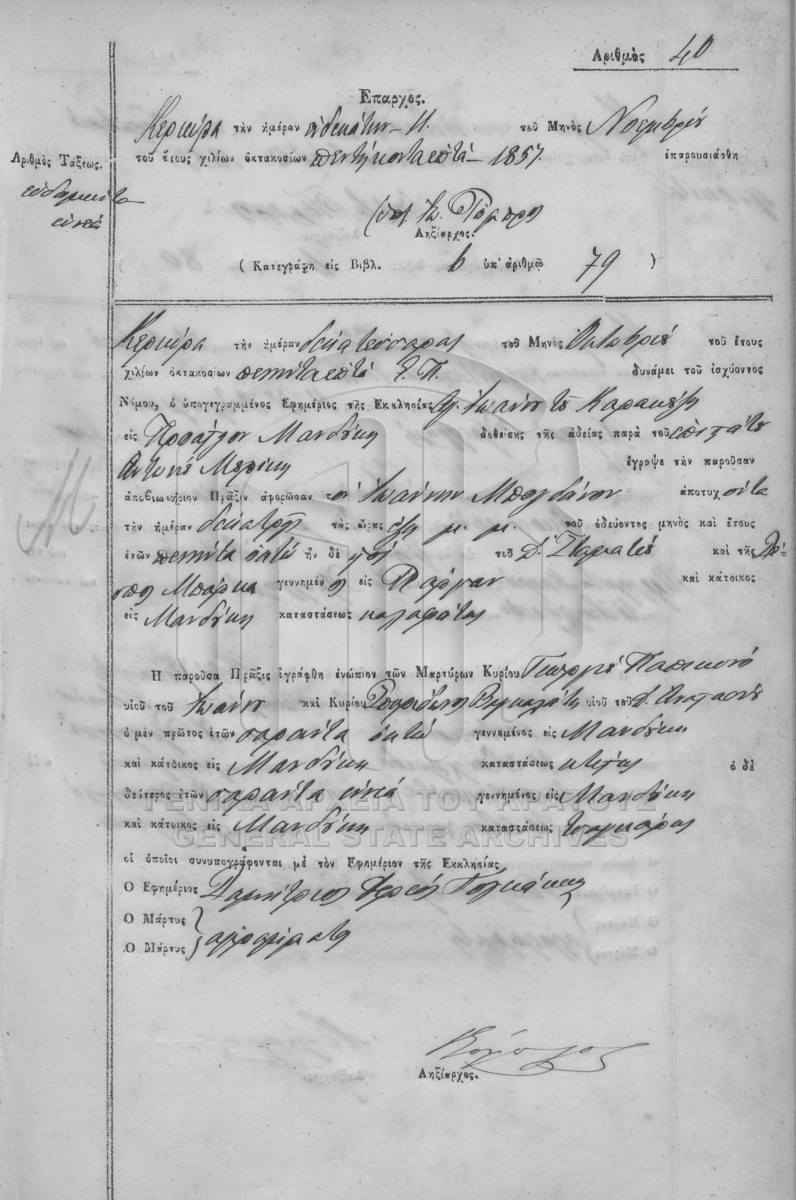 Αριθμὸς 40
Επαρχος.
Κερκύρα τὴν ἡμέραν ἑνδεκάτην 11. τοῦ Μηνὸς Νοεμβρίου
τοῦ ἔτους χιλίων ὀκτακοσίων πεντήκοντα ἑπτά 1857. ἐπαρουσιάσθη
Αριθμὸς Τάξεως.
ἑβδομῆντα
ἐννέα
Ληξίαρχος.
( Κατεγράφη εἰς Βιβλ. b ὑπ' ἀριθμῷ 79 )
Κερκύρα τὴν ἡμέραν δεκατέσσαρας τοῦ Μηνὸς Οκτωβρίου τοῦ ἔτους
χιλίων ὀκτακοσίων πεπῆντα επτά Ε. Π. δυνάμει τοῦ ἰσχύοντος
Νόμου, ὁ ὑπογεγραμμένος Ἐφημέριος τῆς Ἐκκλησίας Αγ. Ιωάννου τοῦ
εἰς Προάστιον Μανδύκη δοθείσης τῆς ἀδείας παρὰ τοῦ επιστάτου
Αντωνίου ἔγραψε τὴν παροῦσαν
ἀποβιωτήριον Πρᾶξιν ἀφορῶσαν τον Ιωάννην Μπογδάνον ἀποτυχόντα
τὴν ἡμέραν τὰς ὥρας έξη μ. μ. τοῦ ὁδεύοντος μηνὸς καὶ ἔτους
ἐτῶν πεπῆντα οκτώ ἦν δὲ υιός τοῦ Δ. Σταματίου καὶ τῆς
Μπάρκα γεννημένος εἰς Πάργαν καὶ κάτοικος
εἰς Μανδύκη καταστάσεως καλαφάτης
Η παροῦσα Πρᾶξις ἐγράφθη ἐνώπιον τῶν Μαρτύρων Κυρίου Γεωργίου
υἱοῦ τοῦ Ιωάννη καὶ Κυρίου Σπυρίδωνος υἱοῦ τοῦ Δ. Αναστασίου
ὁ μὲν πρῶτος ἐτῶν σαράντα οκτώ γεννημένος εἰς Μανδύκη
καὶ κάτοικος εἰς Μανδύκη καταστάσεως ὁ δὲ
δεύτερος ἐτῶν σαράντα εννέα γεννημένος εἰς Μανδύκη
καὶ κάτοικος εἰς Μανδύκη καταστάσεως τσαγκάρης
οἱ ὁποῖοι συνυπογράφονται μὲ τὸν Ἐφημέριον τῆς Ἐκκλησίας
Ο Ἐφημέριος Δημήτριος Ιερεύς
Ο Μάρτυς
Ο Μάρτυς } αγράμματοι
Ληξίαρχος.
ΓΕΝΙΚΑ ΑΡΧΕΙΑ ΤΟΥ ΚΡΑΤΟΥΣ
GENERAL STATE ARCHIVES